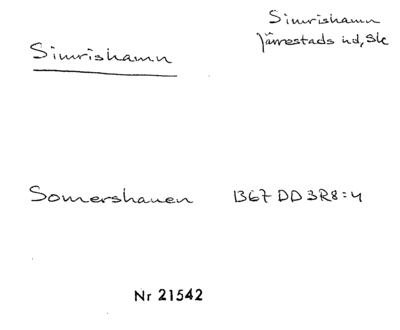 Simrishamn
Simrishamn
Järrestads hd, Sk
Somershauen 1367 DD 3R8:4
Nr 21542